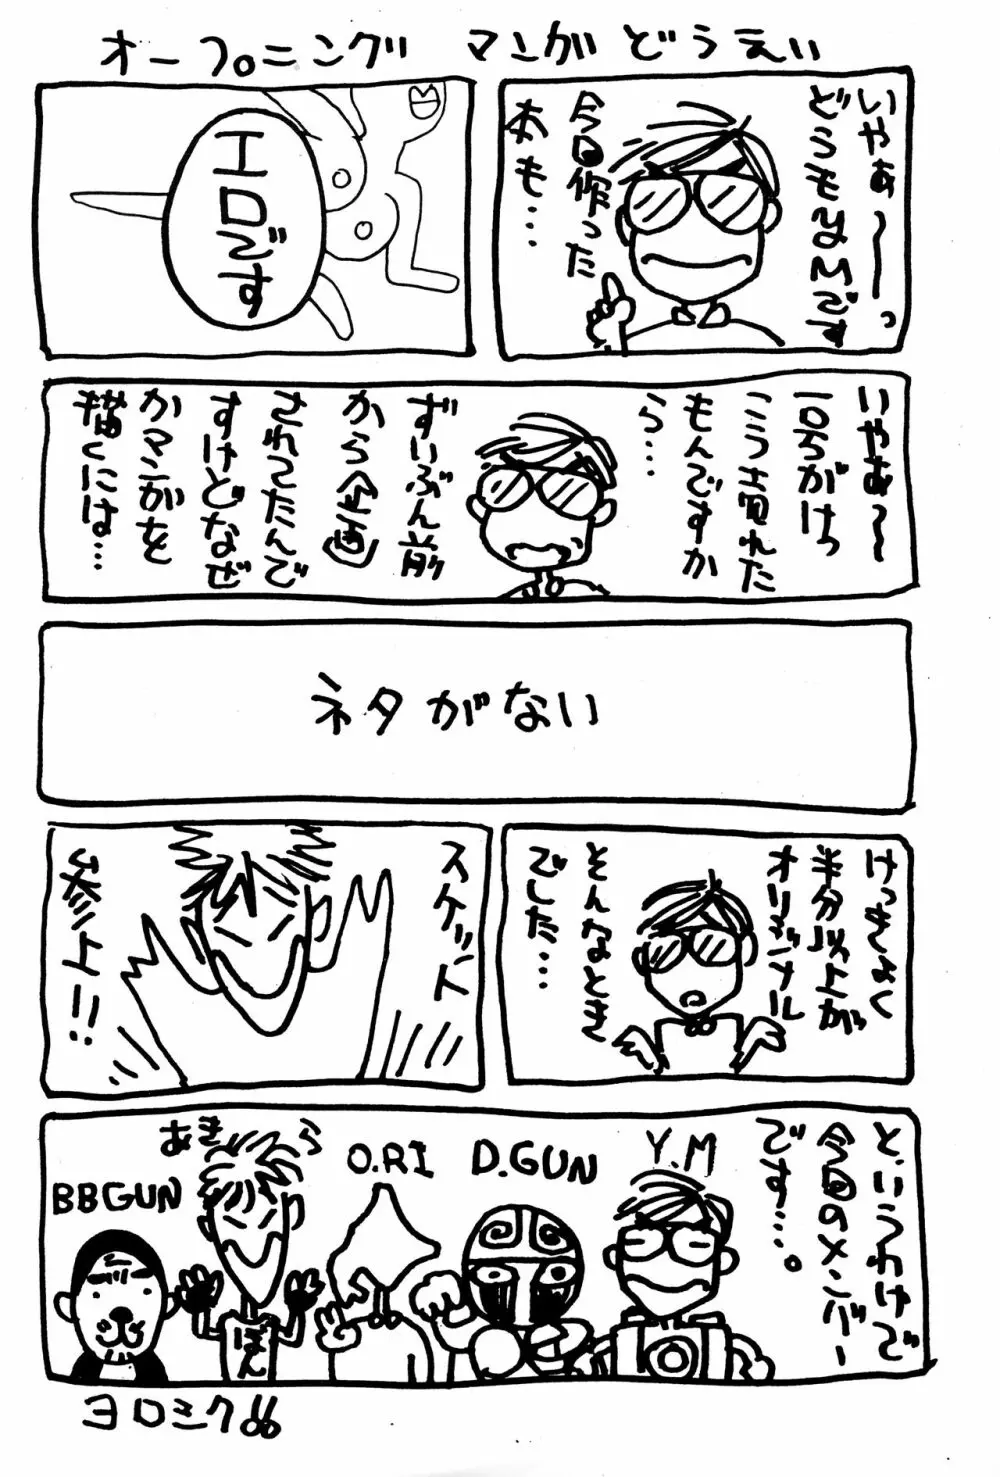 オープニング マンガ どうえい
いやぁ～～っ
どうもY.Mです
今回作った
おも…
エロです
いやあ～～
一らがけっ
こう売れた
もんですか
ら…
ずいぶん前
から企画
されてたんで
すけどなぜ
かマンがを
描くには…
ネタがない
けっきょく
半分以上が
オリジナル
そんなとき
でした…
スケット
参上!!
というわけで
今回のメンバー
です…。
Y.M
D.GUN
O.RI
あきら
BBGUN
ぼん
ヨロシク!!